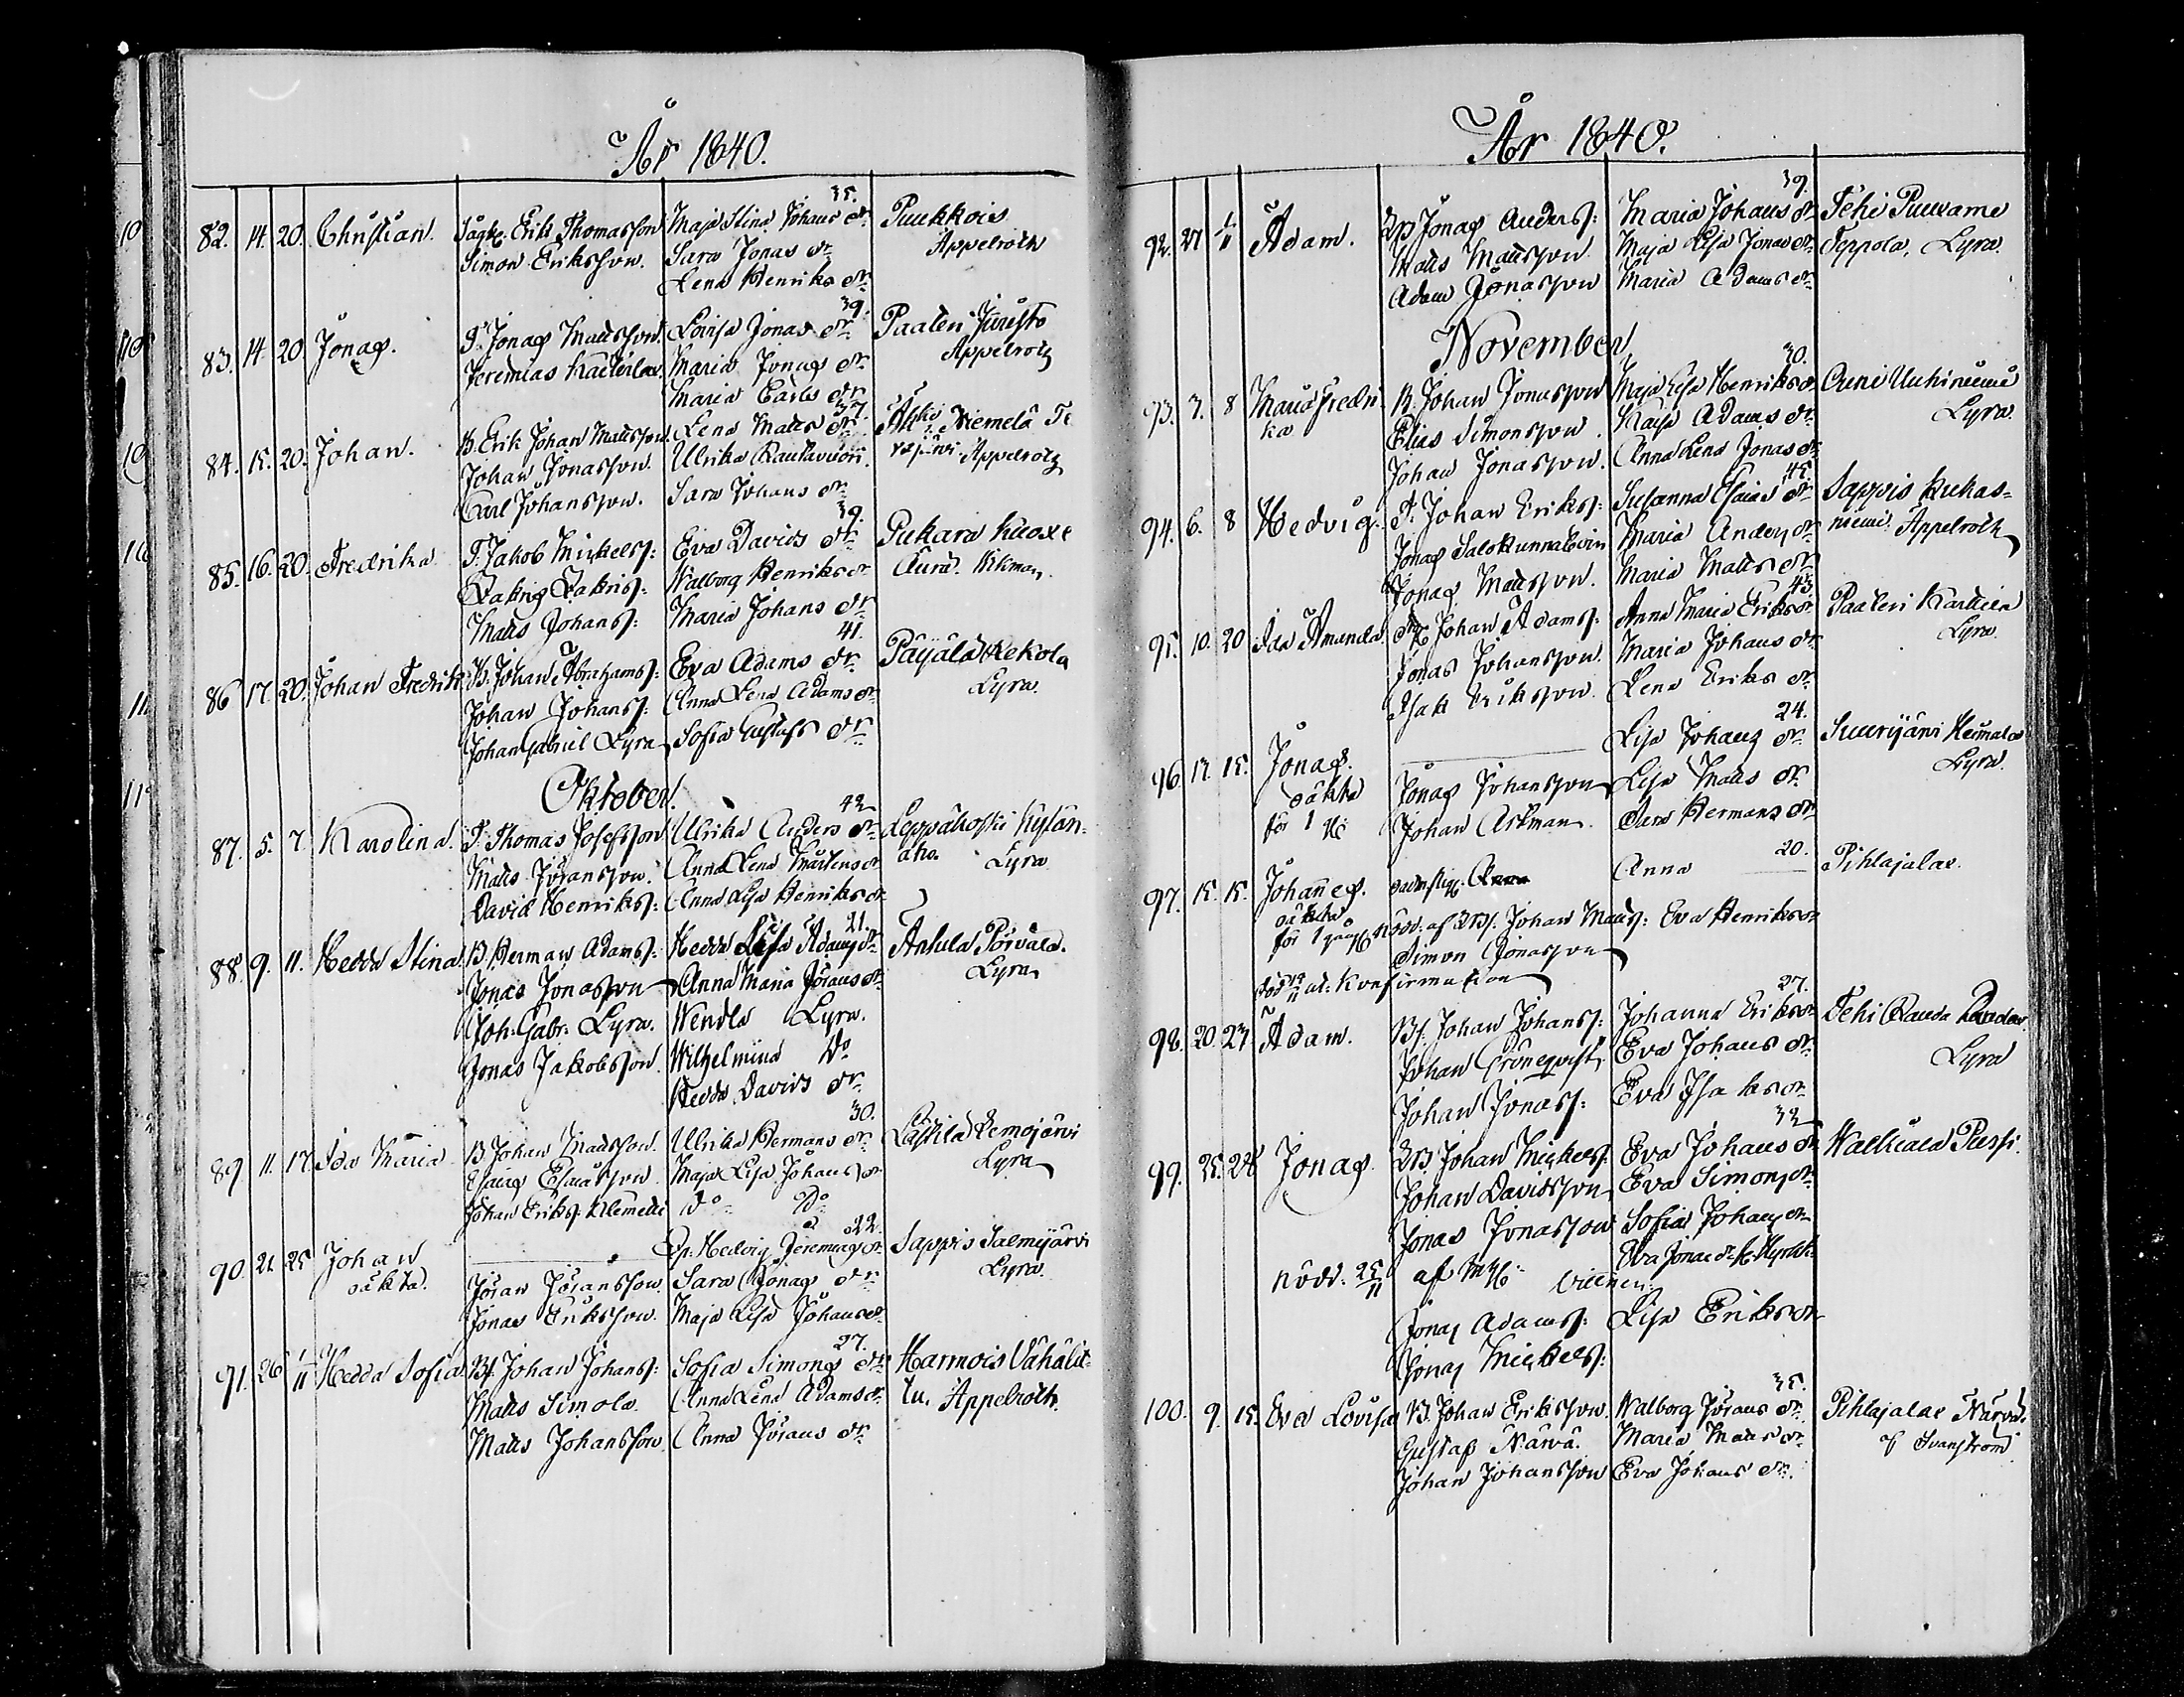 År 1840.
82. 14. 20. Christian. Erik Thomasson Maja Stina Johans dr 35. Puukkois
Simon Eriksson. Sara Jonas dr Appelroth
Lena Henriks dr
83. 14. 20. Jonas. T. Jonas Mattsson. Lovisa Jonas dr 39. Paaten Juusto
Jeremias Maria Jonas dr Appelroth
Maria Carls dr
84. 15. 20. Johan. B. Erik Johan Mattsson. Lena Matts dr 37. Niemelä
Johan Jonasson. Ulrika Rautavuori. Appelroth
Carl Johansson. Sara Johans dr
85. 16. 20. Fredrika T. Jakob Mickelss: Eva Davids dr 39. Pukara
Zakris Zakriss: Walborg Henriks dr
Matts Johanss: Maria Johans dr
86 17. 20. Johan Fredrik B. Johan Abrahamss: Eva Adams dr 41. Päijälä Kekola
Johan Johanss: Anna Lena Adams dr Lyra.
Johan Gabriel Lyra Sofia Gustafs dr
Oktober.
87. 5. 7. Karolina. T. Thomas Josefsson Ulrika Anders dr 42 Leppäkoski Kylän-
Matts Jöransson. Anna Lena Mårtens dr aho. Lyra
David Henrikss: Anna Lisa Henriks dr
88. 9. 11. Hedda Stina. B. Herman Adams: Hedda Lisa Adams dr 21. Anhula
Jonas Jonasson Anna Maria Jörans dr Lyra
Joh: Gabr: Lyra. Wendla Lyra.
Jonas Jakobsson. Wilhelmina Do
Hedda Davids dr
89. 11. 17. Ida Maria B. Johan Mattsson. Ulrika Hermans dr 30. Lemojärvi
Esaias Esaiasson Maja Lisa Johans dr Lyra
Johan Eriks. Klemetti Do Do
90. 21. 25 Johan Hedvig Jeremias dr 22. Sappis Salmijärvi
oäkta. Jöran Jöransson. Sara Jonas dr Lyra.
Jonas Eriksson. Maja Lisa Johans dr
91. 26 1/11 Hedda Sofia Bf. Johan Johanss: Sofia Simons dr 27. Harmois Vähälit-
Matts Simola Anna Lena Adams dr tu. Appelroth
Matts Johansson Anna Jörans dr
År 1840.
92. 27 1/11 Adam. Jonas Anderss: Maria Johans dr 39. Tehi
Matts Mattsson Maja Lisa Jonas dr Seppola, Lyra
Adam Jonasson Maria Adams dr
November
93. 3. 8 Maria Fredri- B. Johan Jonasson Maja Lisa Henriks dr 30. Arvi Uuhiniemi
ka Elias Simonsson Kaisa Adams dr Lyra.
Johan Jonasson. Anna Lena Jonas dr
94. 6. 8 Hedvig. T. Johan Erikss: Susanna Esaias dr 45. Sappis Kukas-
Jonas Salokunnaltoin Maria Anders dr niemi. Appelroth
Jonas Mattsson. Maria Matts dr
95. 10. 20 Ida Amanda. Johan Adams: Anna Maria Eriks dr 43. Paateri
Jonas Johansson. Maria Johans dr Lyra
Isak Eriksson Lena Eriks dr
96. 13. 15. Jonas. Lisa Johans dr 24. Suurijärvi
oäkta Jonas Johansson Lisa Matts dr Lyra.
för 1 Johan Arkman. Sara Hermans dr
97. 15. 15. Johannes. Anna 20. Pihlajalax
oäkta nödd. af Johan Matts: Eva Henriks dr
för 1 gång Simon Jonasson
Konfirmation
98. 20. 23 Adam. Bf. Johan Johanss: Johanna Eriks dr 27. Tehi
Johan Grönqvist Eva Johans dr Lyra
Johan Jonass: Eva Isaks dr
99. 25. 28 Jonas. Johan Mickels: Eva Johans dr 32 Pursi.
Johan Davidsson Eva Simons dr
Jonas Jonasson Sofia Johans dr
nödd. 25/11 af Eva Jonas dr
Vittnen:
Jonas Adamss: Lisa Eriks dr
Jonas Mickels:
100. 9. 15. Eva Lovisa B. Johan Eriksson. Walborg Jörans dr 35. Pihlajalax Närvä.
Gustaf Närvä. Maria Matts dr af Svanström
Johan Johansson Eva Johans dr.